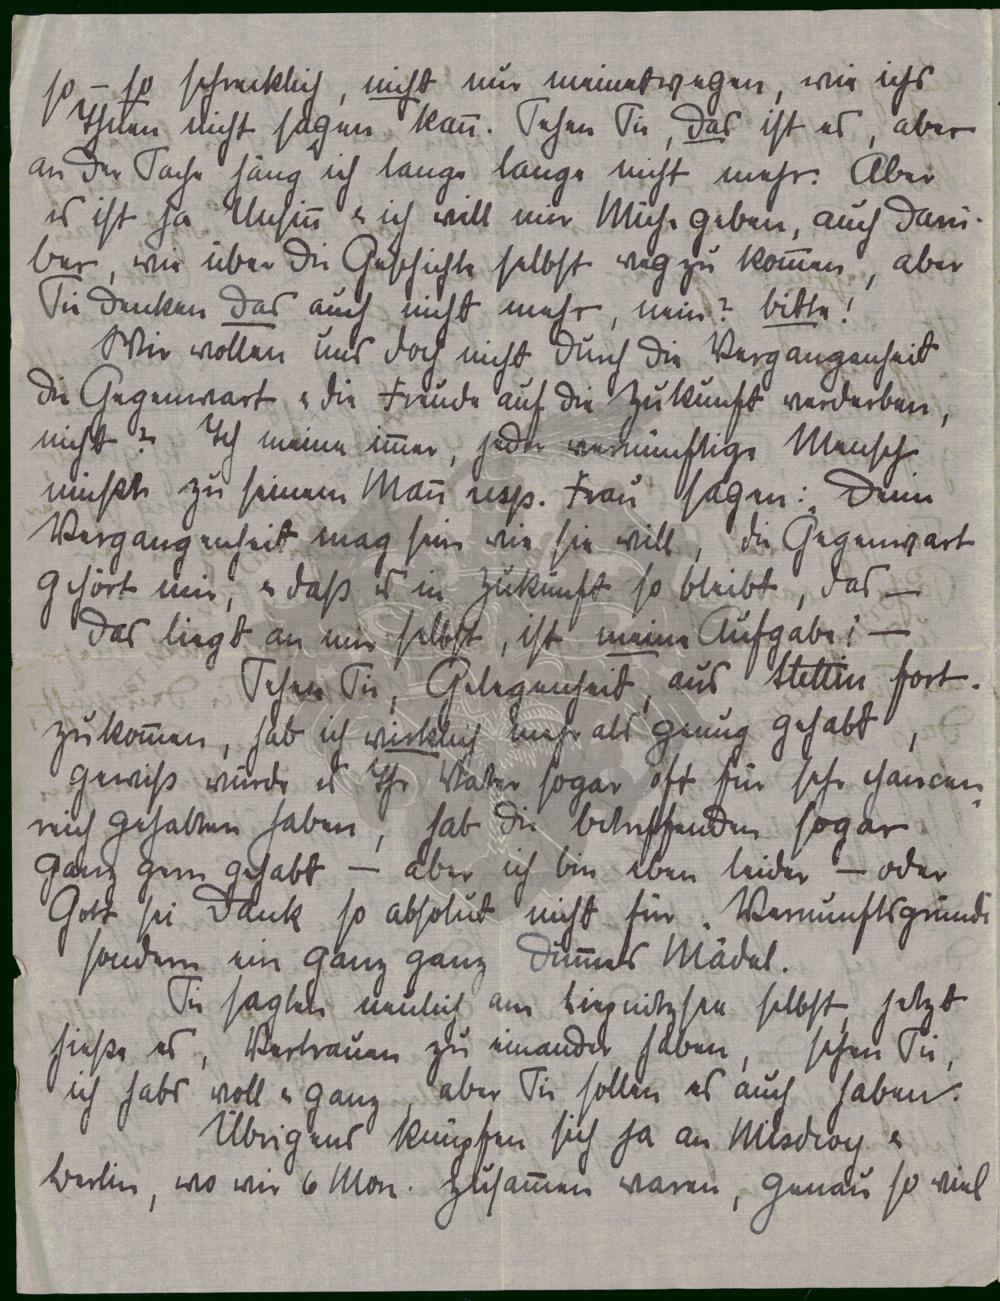 so – so schrecklich, nicht nur meinetwegen, wie ichs
Ihnen nicht sagen kan̄. Sehen Sie, das ist es, aber
an der Sache häng ich lange lange nicht mehr. Aber
es ist ja Unsin̄ & ich will mir Mühe geben, auch darü-
ber, wie über die Geschichte selbst weg zu kom̄en, aber
Sie denken das auch nicht mehr, nein? bitte!
Wir wollen uns doch nicht durch die Vergangenheit
die Gegenwart & die Freude auf die Zukunft verderben,
nicht? Ich meine im̄er, jeder vernünftige Mensch
müßte zu seinem Man̄ resp. Frau sagen: Deine
Vergangenheit mag sein wie sie will, die Gegenwart
gehört mir, & daß es in Zukunft so bleibt, das –
das liegt an mir selbst, ist meine Aufgabe! –
Sehen Sie, Gelegenheit, aus Stettin fort-
zukom̄en, hab ich wirklich mehr als genug gehabt,
gewiß würde es Ihr Vater sogar oft für sehr chancen-
reich gehalten haben, hab die betreffenden sogar
ganz gern gehabt – aber ich bin eben leider – oder
Gott sei Dank so absolut nicht für Vernunftsgründe
sondern ein ganz ganz dum̄es Mädel.
Sie sagten neulich am Liepnitzsee selbst, jetzt
hieße es, Vertrauen zu einander haben, sehen Sie,
ich habs voll & ganz, aber Sie sollen es auch haben.
Übrigens knüpfen sich ja an Misdroy &
Berlin, wo wir 6 Mon. zusam̄en waren, genau so viel